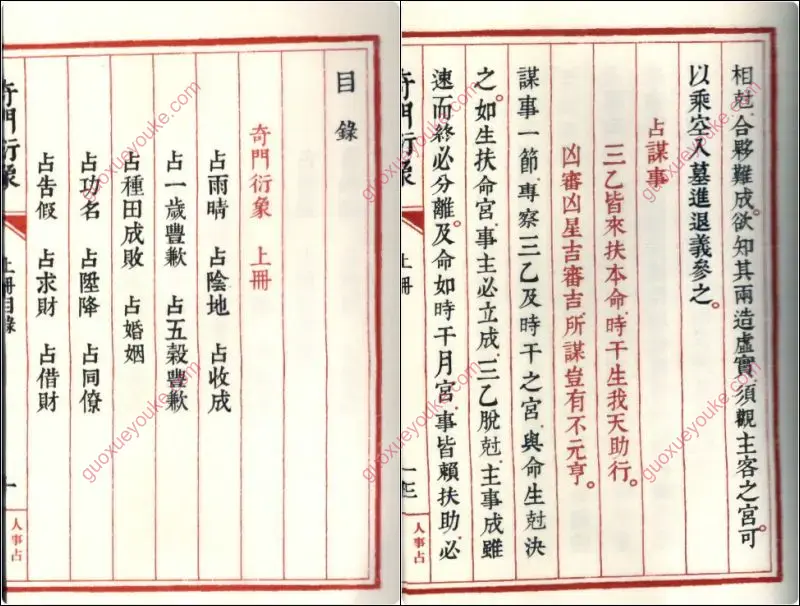 目錄
奇門衍象 上冊
占雨晴 占陰地 占收成
占一歲豐歉 占五穀豐歉
占種田成敗 占婚姻
占功名 占陞降 占同僚
占告假 占求財 占借財
奇門衍象 上冊目錄 一
人事占
相尅合夥難成。欲知其兩造虛實須觀主客之宮。可
以乘空入墓進退義參之。
占謀事
三乙皆來扶本命時干生我天助行。
凶審凶星吉審吉所謀豈有不元亨。
謀事一節專察三乙及時干之宮與命生尅決
之。如生扶命宮事主必立成三乙脫尅主事成雖
速而終必分離。及命如時干月宮事皆賴扶助必
奇門衍象 上冊
人事占
guoxueyouke.com
guoxueyouke.com
guoxueyouke.com
guoxueyouke.com
guoxueyouke.com
guoxueyouke.com